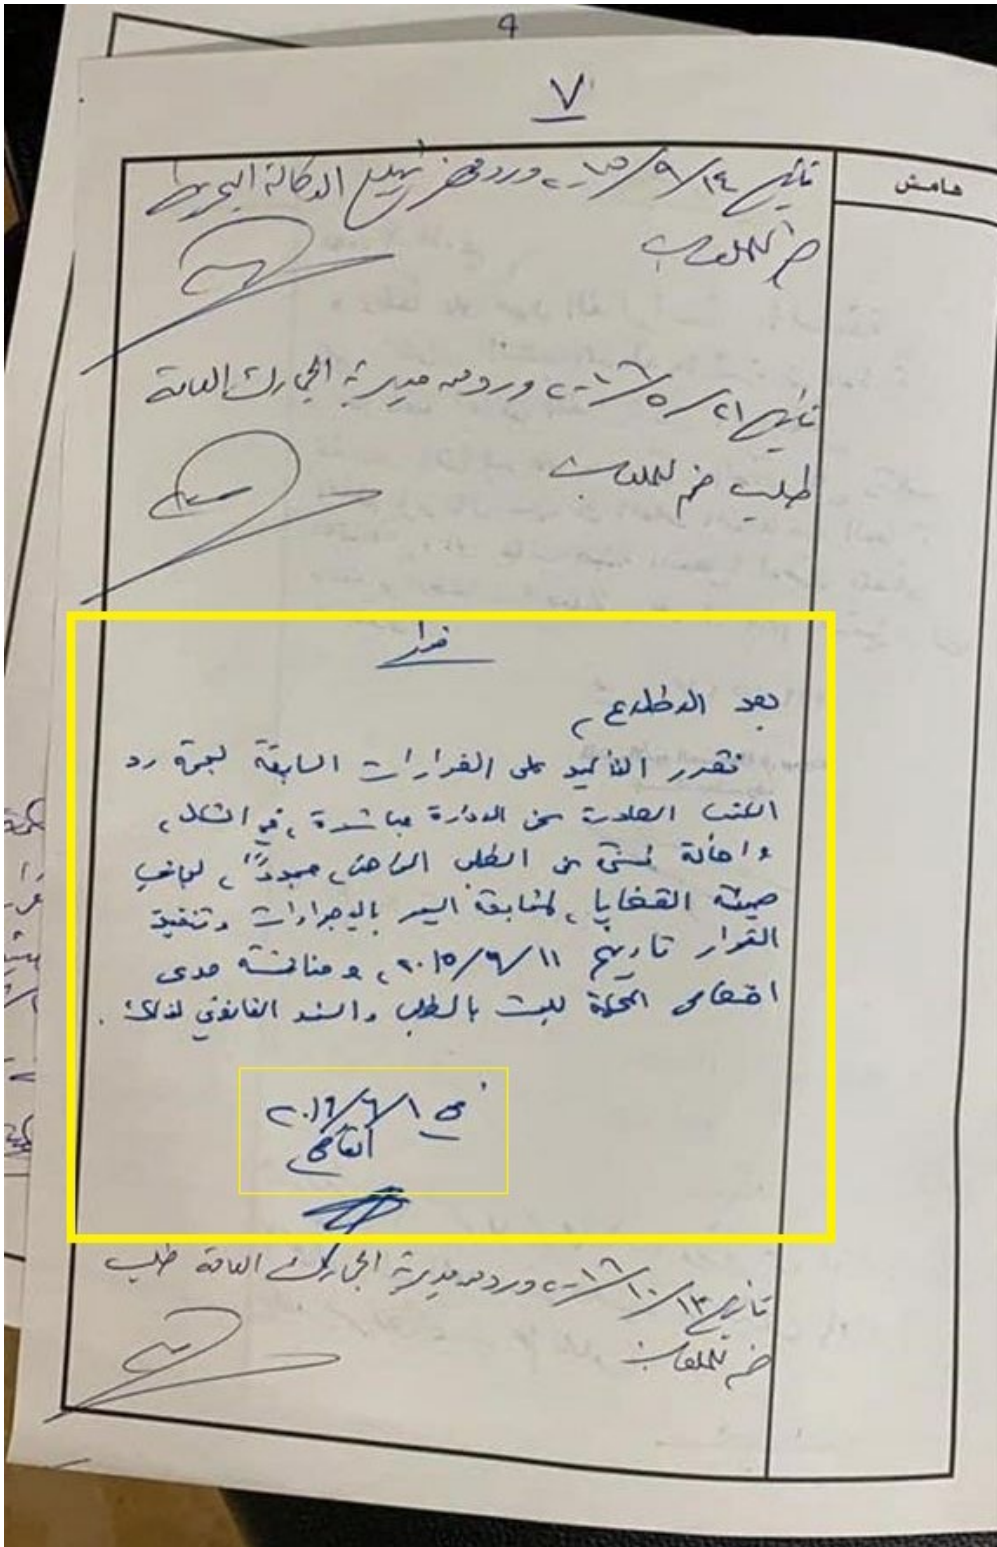 ٩
٧
هامش
تاريخ ٢٠١٥/٩/١٤ ورد محضر تبليغ الوكالة البحرية
ضم للملف
تاريخ ٢٠١٦/٥/٢١ ورد من مديرية الجمارك العامة
طلب ضم للملف
قرار
بعد الاطلاع،
نقرر التأكيد على القرارات السابقة لجهة رد
الكتب الصادرة عن الادارة مباشرة، في الشكل،
واحالة نسخة عن الطلب الراهن، مجدداً، لجانب
هيئة القضايا، لمتابعة السير بالاجراءات وتنفيذ
القرار تاريخ ٢٠١٥/٩/١١، ومناقشة مدى
اختصاص المحكمة للبت بالطلب والسند القانوني لذلك.
في ٢٠١٦/٦/١
القاضي
تاريخ ٢٠١٦/١٠/١٣ ورد من مديرية الجمارك العامة طلب
ضم للملف